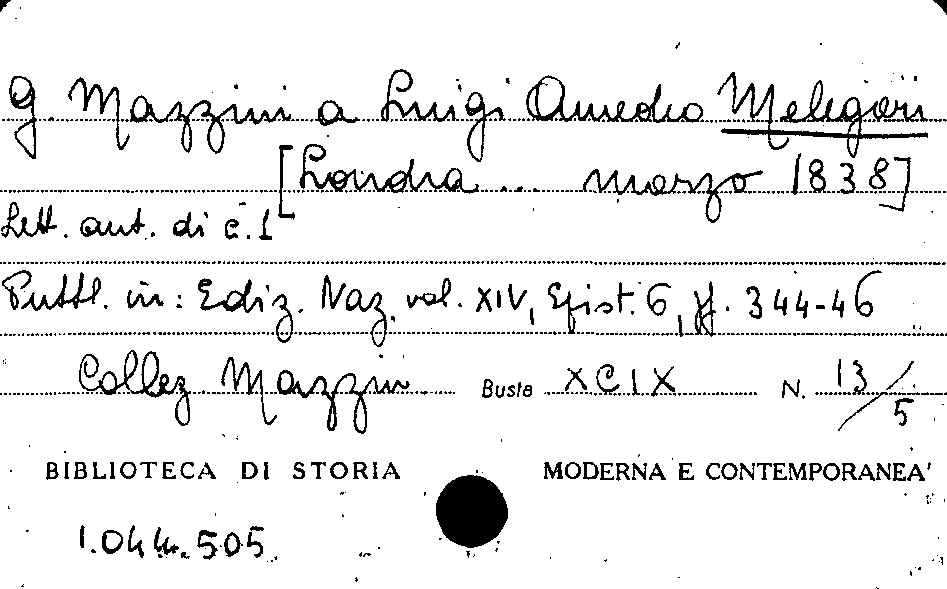 G. Mazzini a Luigi Amedeo Melegari
[Londra ... marzo 1838]
Lett. aut. di c. 1
Pubbl. in: Ediz. Naz. vol. XIV, Epist. 6, pp. 344-46
Collez Mazzini Busta XCIX N. 13/5
BIBLIOTECA DI STORIA MODERNA E CONTEMPORANEA
1.044.505